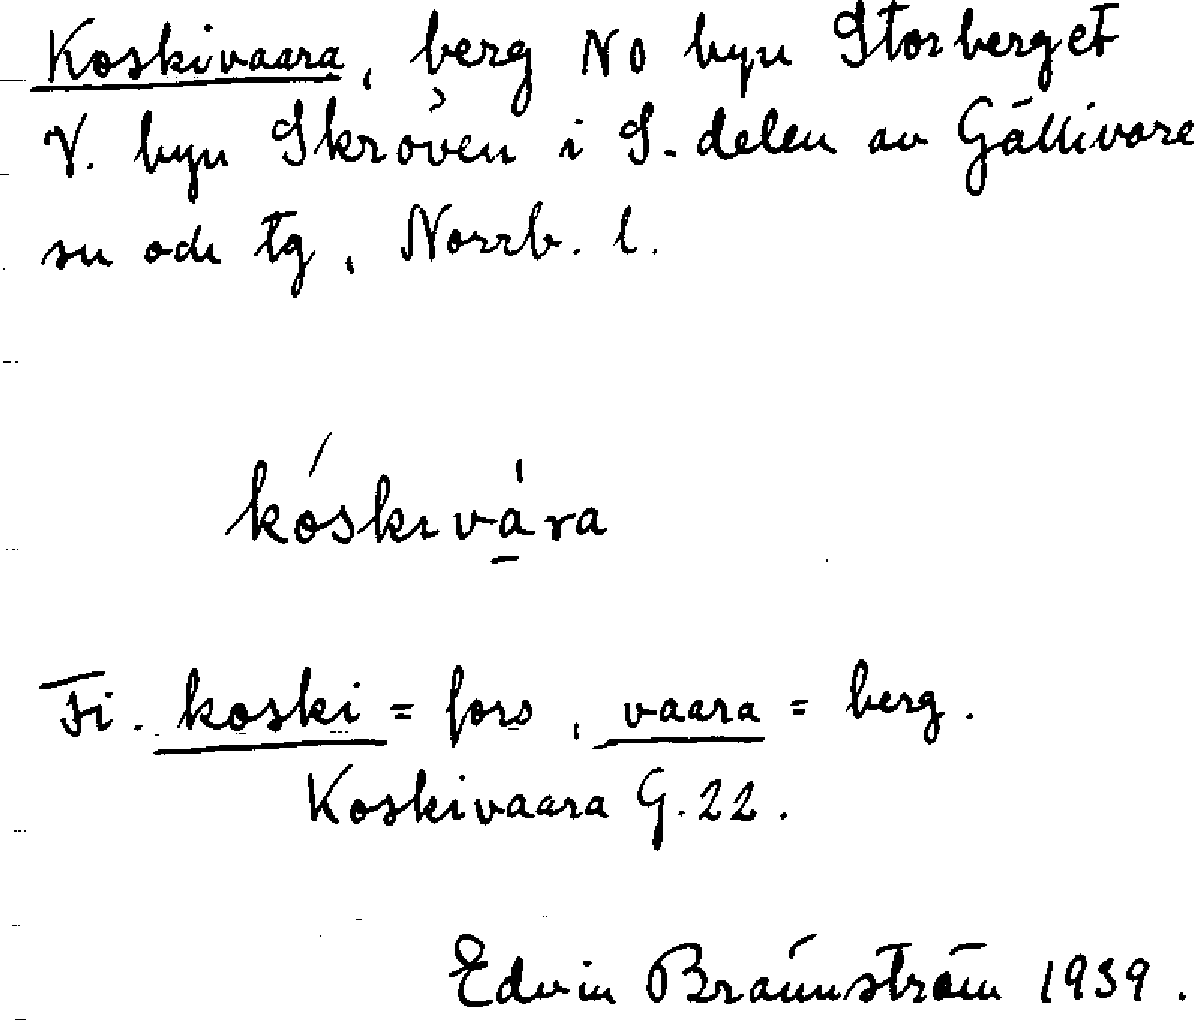 Koskivaara, berg NO byn Storberget
V. byn Skröven i S. delen av Gällivare
sn och tg, Norrb. l.
kóskıvàra
Fi. koski = fors, vaara = berg.
Koskivaara G. 22.
Edvin Brännström 1939.